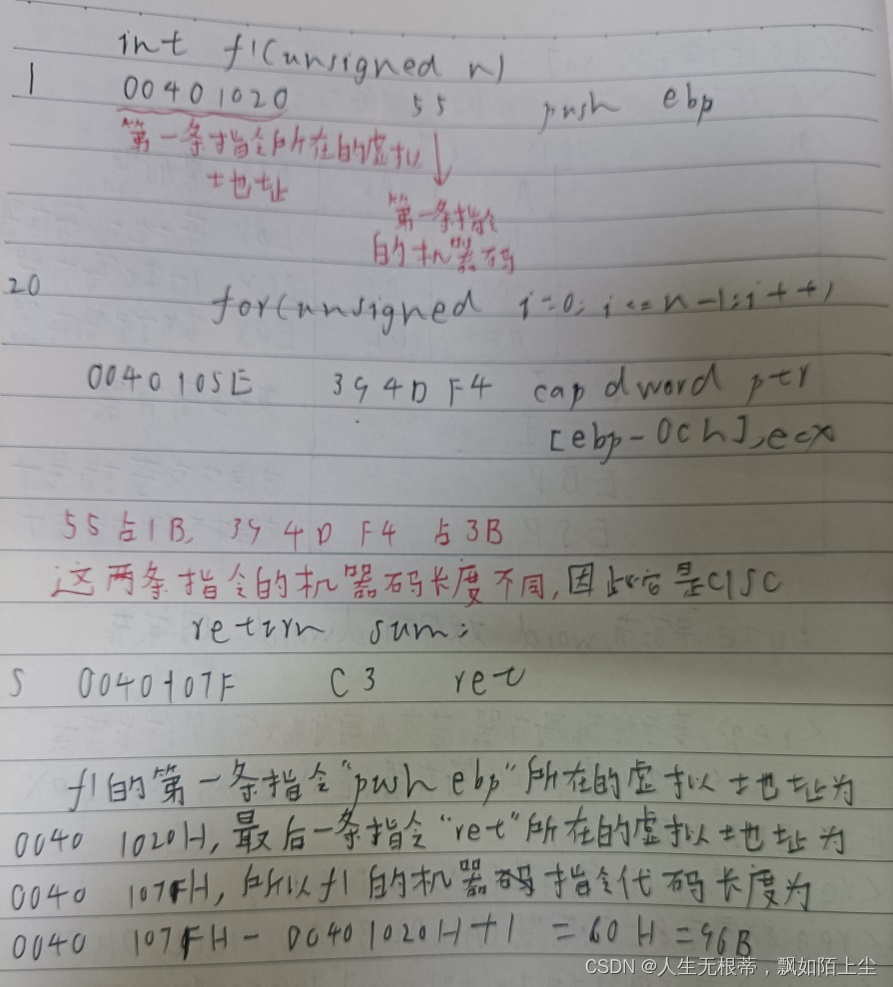 int f1(unsigned n)
1 00401020 55 push ebp
第一条指令所在的虚拟
地址
第一条指令
的机器码
20 for(unsigned i=0; i<=n-1; i++)
0040105E 394D F4 cap dword ptr
[ebp-0Ch],ecx
55占1B, 394D F4 占3B
这两条指令的机器码长度不同,因此它是CISC
return sum;
5 0040107F C3 ret
f1的第一条指令"push ebp"所在的虚拟地址为
0040 1020H,最后一条指令"ret"所在的虚拟地址为
0040 107FH,所以f1的机器码指令代码长度为
0040 107FH-00401020H+1=60H=96B
CSDN @人生无根蒂,飘如陌上尘